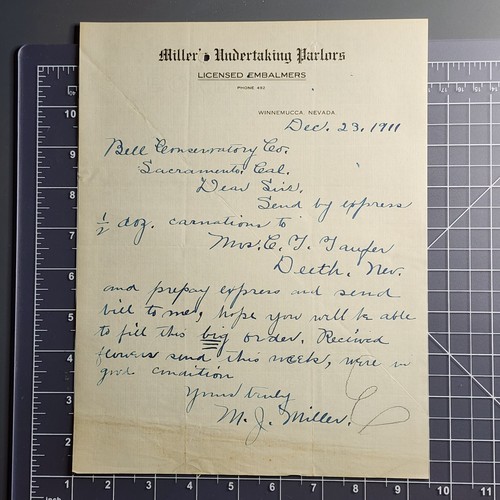 Miller's Undertaking Parlors
LICENSED EMBALMERS
PHONE 492
WINNEMUCCA, NEVADA
Dec. 23, 1911
Bell Conservatory Co.
Sacramento, Cal.
Dear Sirs.
Send by express
1/2 doz. carnations to
Mrs. C. T.
Deeth, Nev.
and prepay express and send
bill to me, hope you will be able
to fill this big order. Received
flowers send this week, were in
good condition
Yours truly
M. J. Miller.